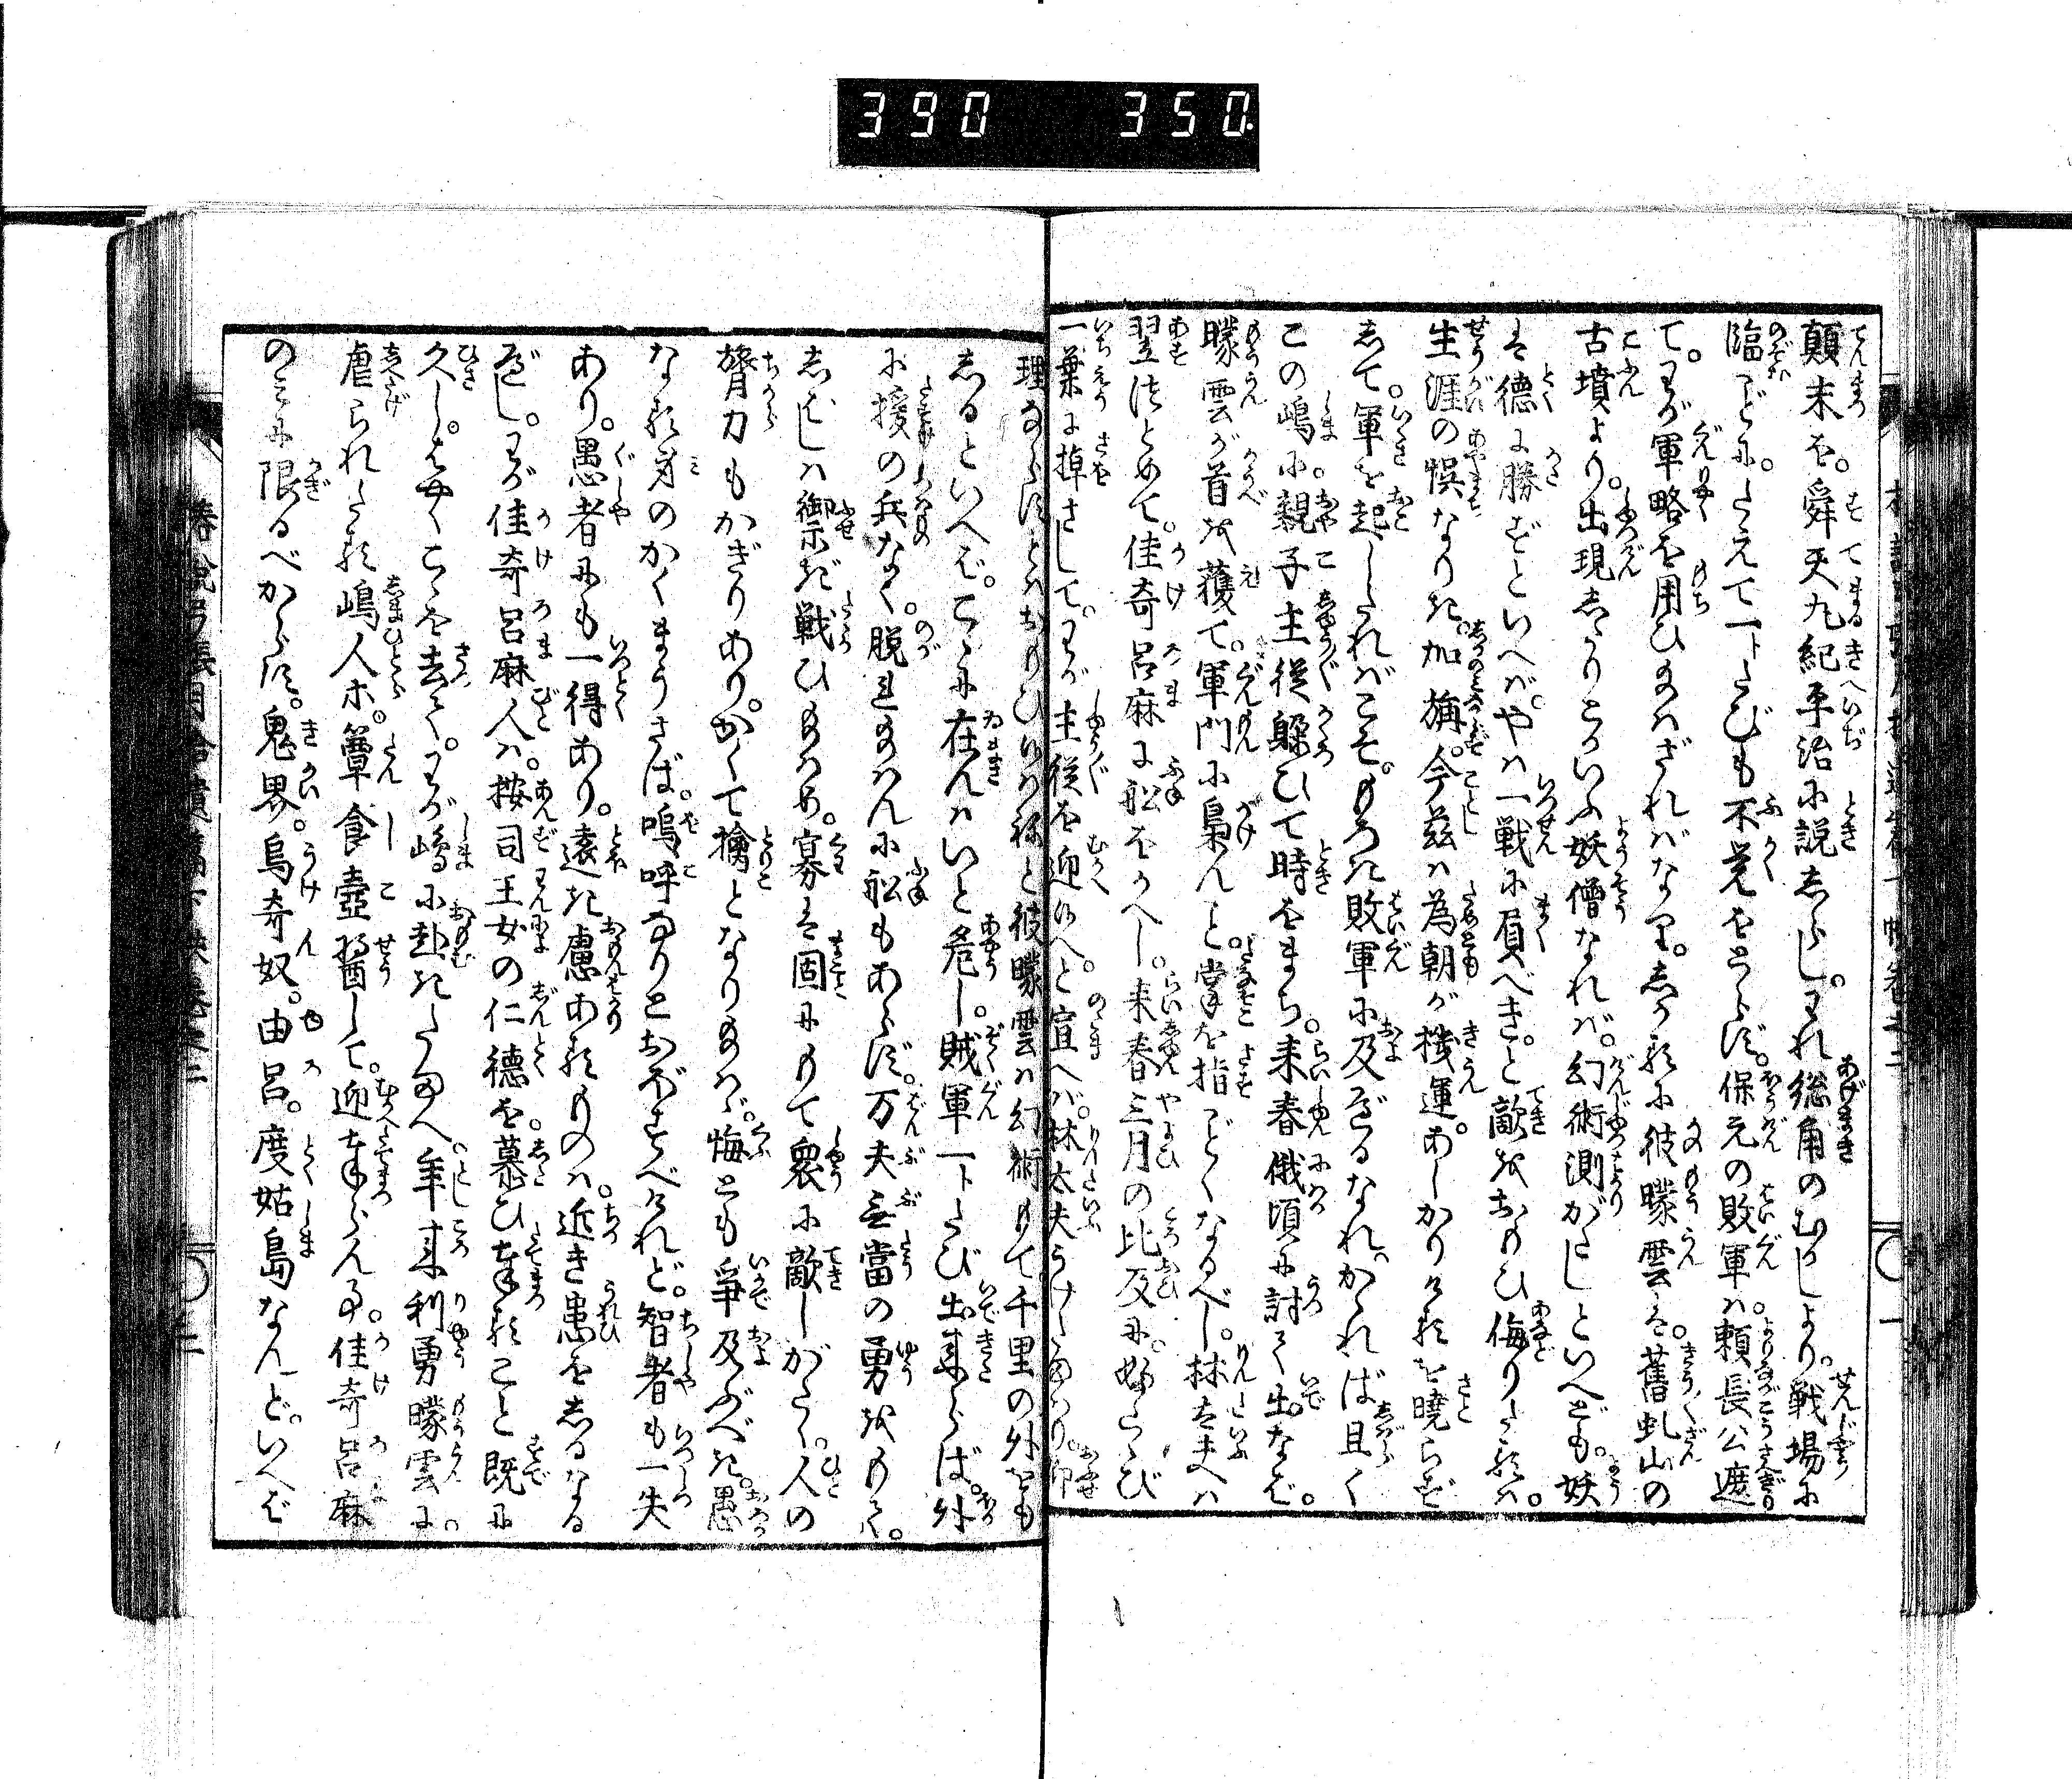 390 350.
顛末を。舜天丸紀平治に説しらし。われ総角のむかしより。戦場に
臨ごとに。たえて一トたびも不覚をとらず。保元の敗軍は。頼長公遮
て。わが軍略を用ひ給はざればなり。しかるに彼曚雲は。舊虬山の
古墳より。出現したりといふ妖僧なれば。幻術測がたしといへども。妖
は徳に勝ずといへば。やは一戦に負べき。と敵をおもひ侮りたるは。
生涯の悞なりき。加旃。今茲は為朝が機運。あしかりけるを曉らず
して。軍を起したればこそ。かゝる敗軍に及べるなれ。かゝれば且く
この嶋に。親子主従躱ひて時をまち。来春俄頃に討て出なば。
曚雲が首を獲て。軍門に梟んと。掌を指ごとくなるべし。林太夫は
翌つとめて。佳奇呂麻に舩をかへし。来春三月の比及に。ふたゝび
一葉に掉さして。わが主従を迎候へと宣へば。林太夫うけ給はり。仰
理ならずとはおもひ候はねと彼曚雲は幻術もて千里の外をも
しるといへば。こゝに在んはいと危し。賊軍一トたび出来らば。外
に援の兵なく。脱れ給はんに舩もあらず。万夫無當の勇をもて。
しばしは禦ぎ戦ひ給はめ。寡は固にもて衆に敵しがたく。人の
膂力もかぎりあり。かくて擒となり給はゞ。悔とも争及ぶべき。愚
なる身のかくまうさば。嗚呼なりとおぼすべけれど。智者も一失
あり。愚者にも一得あり。遠き慮あるものは。近き患をしるなる
べし。わが佳奇呂麻人は。按司王女の仁徳を。慕ひ奉ること既に
久し。はやくこゝを去て。わが嶋に赴きたまへ。年来利勇曚雲に。
虐られたる嶋人等。簞食壺醤して。迎奉らん事。佳奇呂麻
のみに限るべからず。鬼界。烏奇奴。由呂。度姑島なんど。いへば